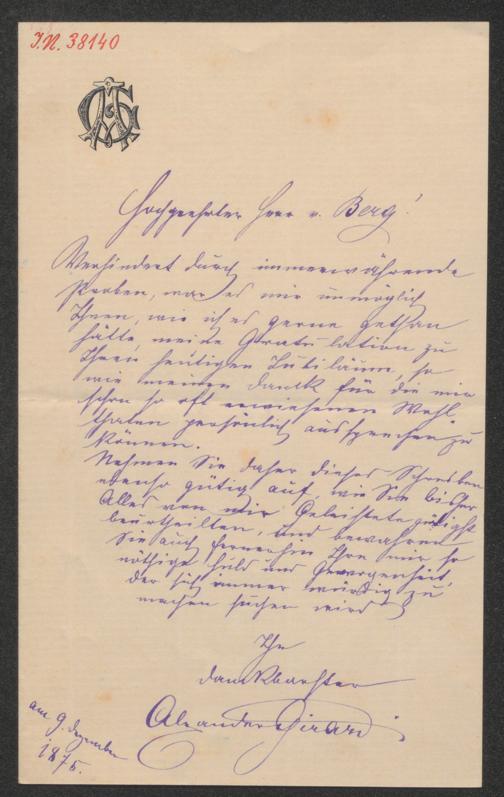 I.N. 38140
Hochgeehrter Herr v. Berg!
Verhindert durch immerwährende
Proben, war es mir unmöglich
Ihnen, wie ich es gerne gethan
hätte, meine Gratulation zu
Ihrem heutigen Jubiläum, so
wie meinen Dank für die mir
schon so oft erwiesenen Wohl-
thaten persönlich aussprechen zu
können.
Nehmen Sie daher dieses Schreiben
ebenso gütig auf, wie Sie bisher
Alles von mir Geleistete gütigst
beurtheilten, und bewahren
Sie auch fernerhin Ihre mir so
nöthige Huld und Gewogenheit,
der sich immer würdig zu
machen suchen wird
Ihr
dankbarster
Alexander Girardi
am 9. Dezember
1875.